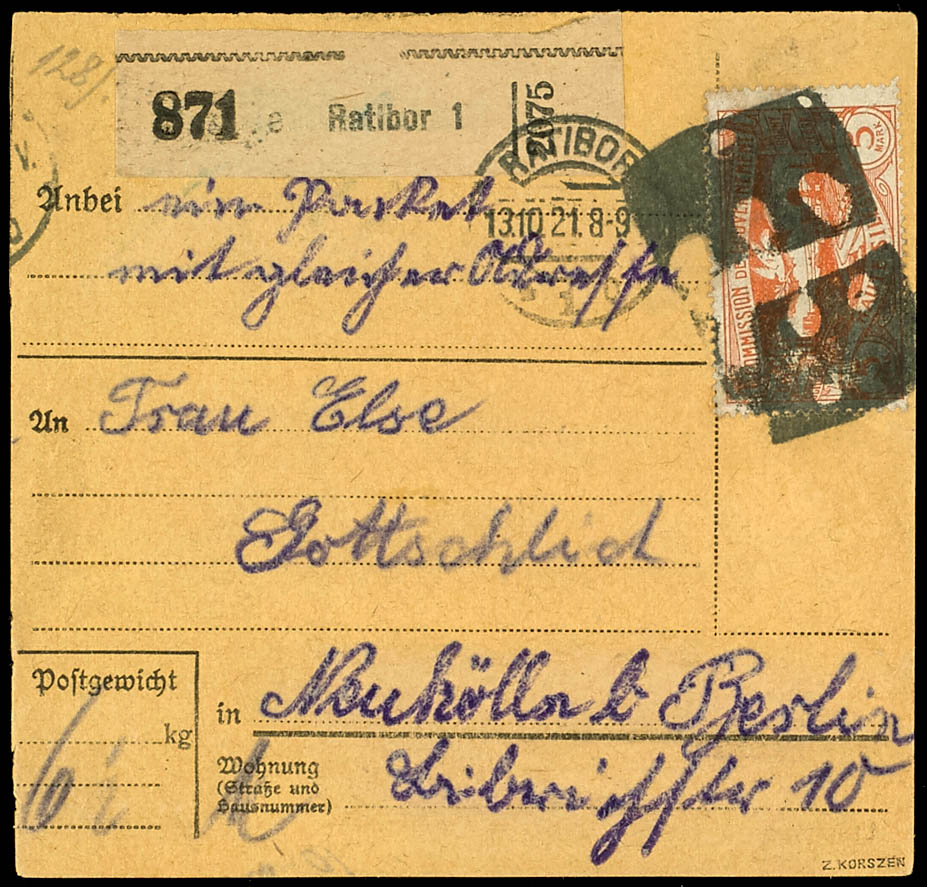 128
871 Ratibor 1
2075
RATIBOR
13.10.21.8-9
1
5
MARK
COMMISSION DE GOUVERNEMENT
Anbei ein Packet
mit gleicher Adresse
An Frau Else
Gottschlich
Postgewicht
6 kg
in Neukölln b Berlin
Wohnung
(Straße und
Hausnummer)
10
Z. KORSZEN